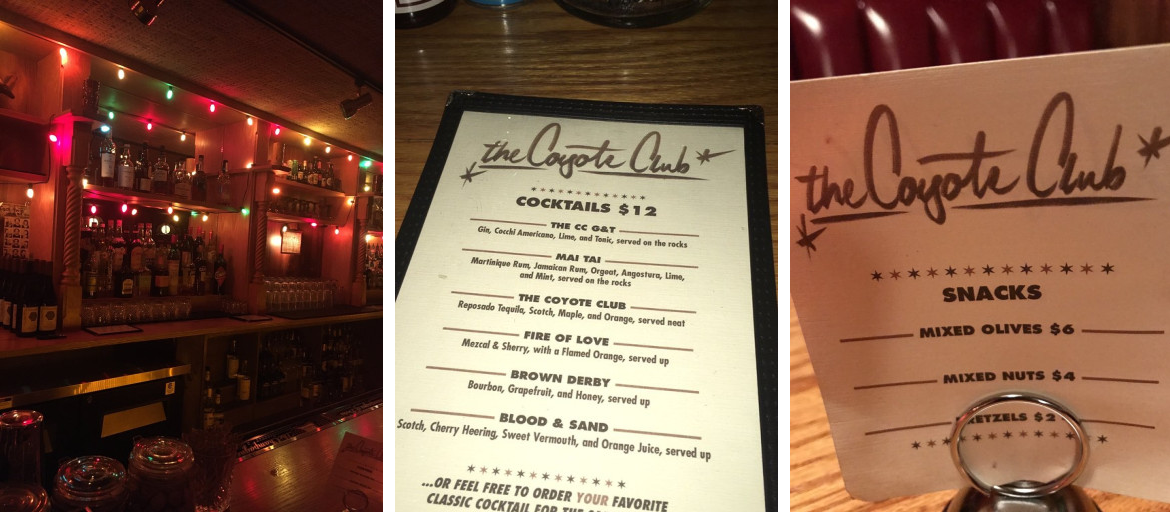 the Coyote Club
COCKTAILS $12
THE CC G&T
Gin, Cocchi Americano, Lime, and Tonic, served on the rocks
MAI TAI
Martinique Rum, Jamaican Rum, Orgeat, Angostura, Lime,
and Mint, served on the rocks
THE COYOTE CLUB
Reposado Tequila, Scotch, Maple, and Orange, served neat
FIRE OF LOVE
Mezcal & Sherry, with a Flamed Orange, served up
BROWN DERBY
Bourbon, Grapefruit, and Honey, served up
BLOOD & SAND
Scotch, Cherry Heering, Sweet Vermouth, and Orange Juice, served up
...OR FEEL FREE TO ORDER YOUR FAVORITE
CLASSIC COCKTAIL FOR THE
the Coyote Club
SNACKS
MIXED OLIVES $6
MIXED NUTS $4
RETZELS $2